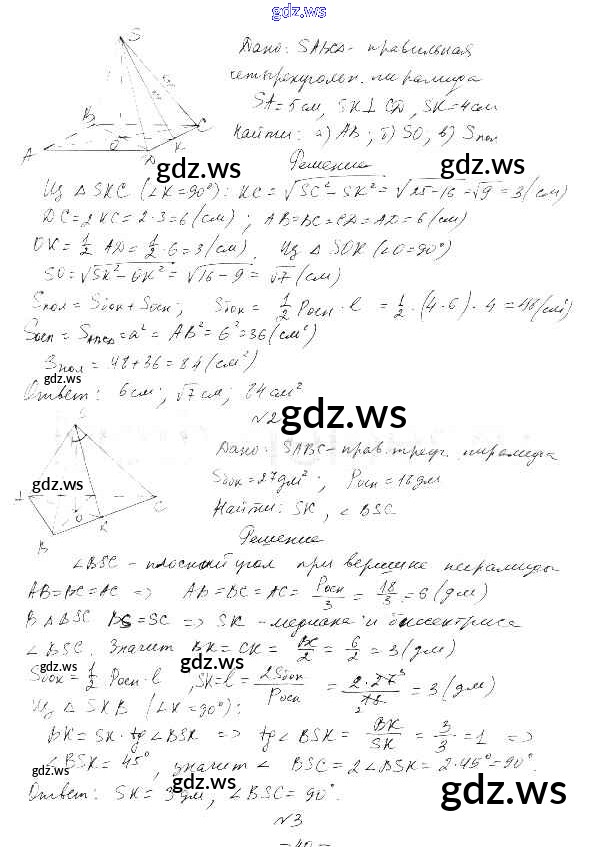 gdz.ws
S
Дано: SABCD - правильная
четырехугольн. пирамида
SA = 5 см, SK ⊥ CD, SK = 4 см
B C Найти: а) AB; б) SO, в) Sпол
A O D K Решение
gdz.ws gdz.ws
Из △ SKC (∠K = 90°): KC = √SC² - SK² = √25 - 16 = √9 = 3 (см)
DC = 2KC = 2·3 = 6 (см); AB = BC = CD = AD = 6 (см)
OK = 1/2 AD = 1/2 · 6 = 3 (см). Из △ SOK (∠O = 90°)
SO = √SK² - OK² = √16 - 9 = √7 (см)
Sпол = Sбок + Sосн; Sбок = 1/2 Pосн · l = 1/2 · (4·6) · 4 = 48 (см²)
Sосн = SABCD = a² = AB² = 6² = 36 (см²)
Sпол = 48 + 36 = 84 (см²)
gdz.ws
Ответ: 6 см; √7 см; 84 см²
gdz.ws
№2
S
Дано: SABC - прав. треуг. пирамида
Sбок = 27 дм²; Pосн = 18 дм
gdz.ws
O C Найти: SK, ∠BSC
B K gdz.ws
Решение
∠BSC - плоский угол при вершине пирамиды
AB = BC = AC => AB = BC = AC = Pосн/3 = 18/3 = 6 (дм)
В △ BSC BS = SC => SK - медиана и биссектриса
∠BSC. Значит BK = CK = BC/2 = 6/2 = 3 (дм)
gdz.ws gdz.ws
Sбок = 1/2 Pосн · l, SK = l = 2Sбок/Pосн = 2·27/18 = 3 (дм)
Из △ SKB (∠K = 90°):
BK = SK · tg∠BSK => tg∠BSK = BK/SK = 3/3 = 1 =>
∠BSK = 45°, значит ∠BSC = 2∠BSK = 2·45° = 90°.
gdz.ws gdz.ws
Ответ: SK = 3 дм, ∠BSC = 90°.
№3
- 40 -